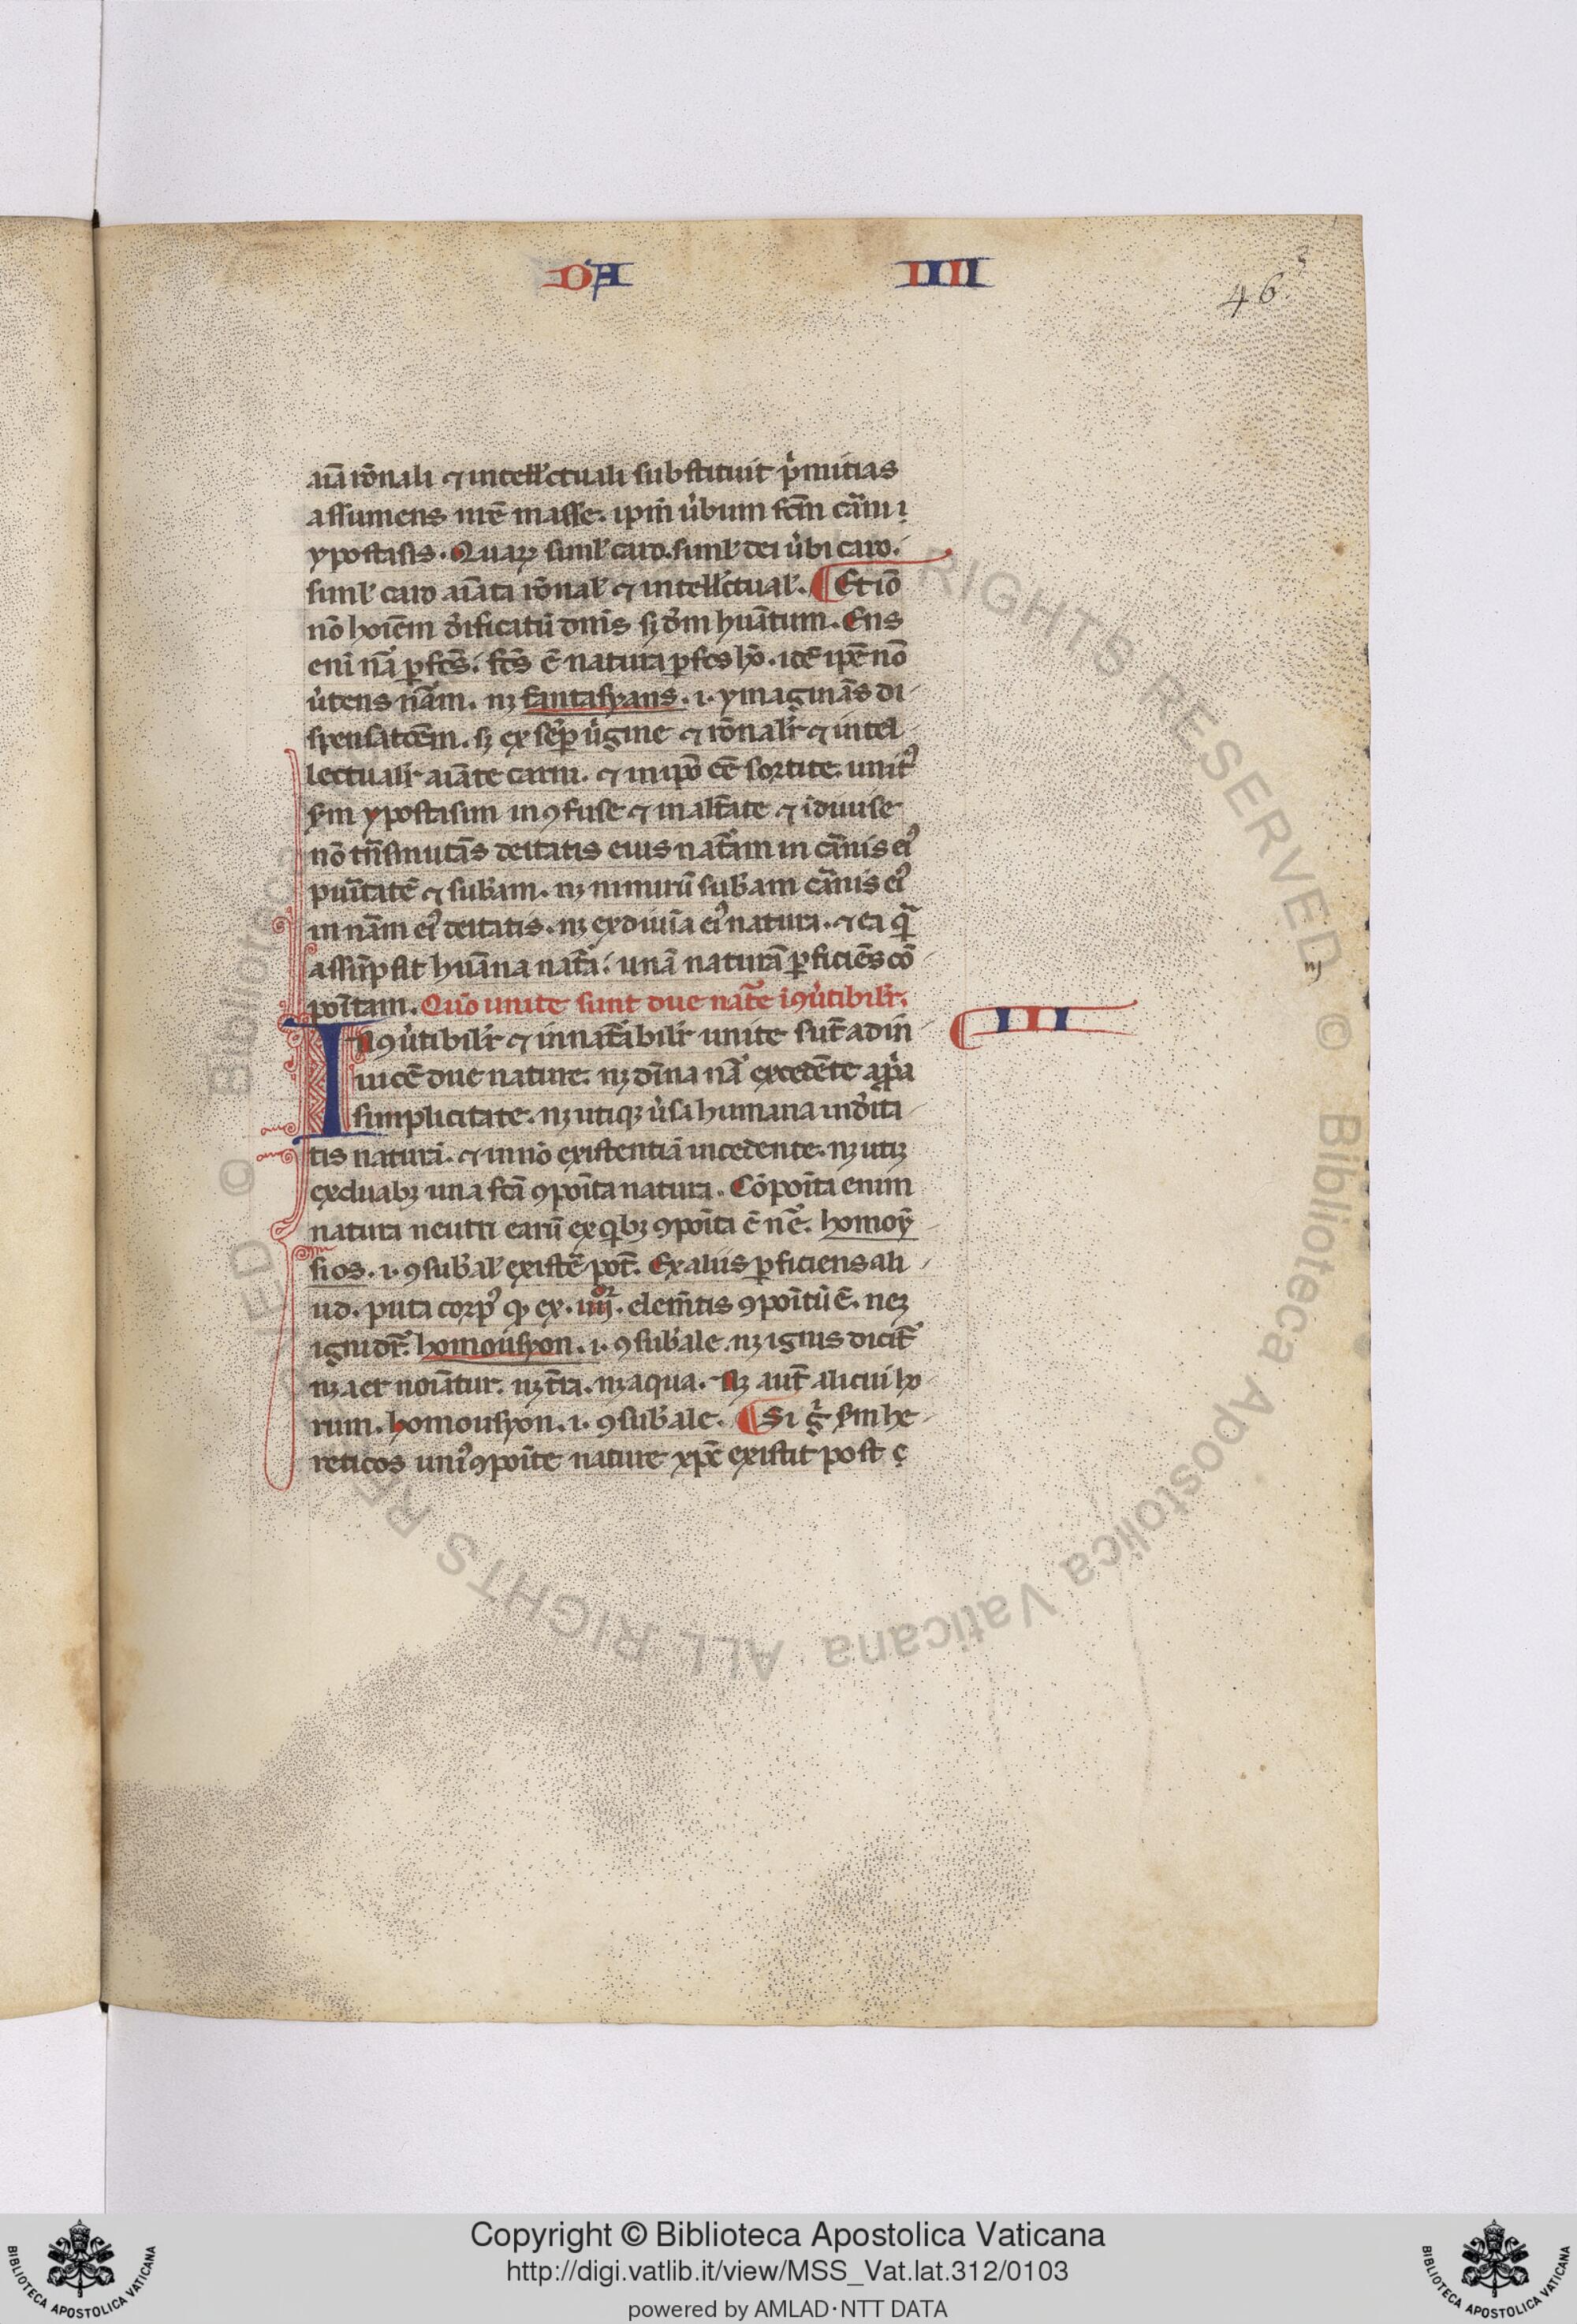 DA IIII
46
aīa rōnali ⁊ intell'ctuali substituit p̓mitias
assumens nr̄e masse. ipm̄ u̓bum fcm̄ carni
ypostasis. Quaꝝ siml' caro. siml' dei u̓bi caro.
siml' caro aīata rōnal' ⁊ intell'ctual'. ¶ Et iō
nō hoīem deificatū dnīs sꝫ dm̄ huātum. Ens
eni nā ꝑfcs̄. fcs̄ ē natura ꝑfcs hō. idē ipē nō
u̓tens nām. nꝫ fantasyans .i. ymaginās di
spensatōem. sꝫ ex u̓gine ⁊ rōnalr̄ ⁊ intel
lectualr̄ aīate carni. ⁊ in ipō eē sortite. unit᷒
sm̄ ypostasim inꝯfuse ⁊ inalt̄ate ⁊ idiuise
nō tn̄smutās deitatis eius natām in carnis ei᷒
⁊ subam. nꝫ nimirū subam carnis ei᷒
in nām ei᷒ deitatis. nꝫ ex diuīa ei᷒ natura. ⁊ ea qͣ
assūpsit huāna natā. unā naturā ꝑficiēs cō
poītam. Quō unite sunt due nate iꝯu̓tibilr̄.
Inꝯu̓tibilr̄ ⁊ innatābilr̄ unite sūt ad in
uicē due nature. nꝫ dīna nā excedēte a ꝓp̓a
simplicitate. nꝫ utiqꝫ u̓sa humana in deita
tis naturā. ⁊ in nō existentiā incedente. nꝫ utiꝫ
ex duabꝫ una fcā ꝯpoīta natura. Cōpoīta enim
natura neutri earū ex qͥbꝫ ꝯpoīta ē homoy
sios .i. ꝯsubal' existē̓ pōt. Ex aliis ꝑficiens ali
ud. puta corp᷒ qd̓ ex .iiij. elem̄tis ꝯpoītū ē. neꝫ
igni dr̄. homousyon .i. ꝯsubale. nꝫ ignis dicit᷒
nꝫ aer noīatur. nꝫ t̄ra. nꝫ aqua. Nꝫ aut̄ alicui ho
rum. homousyon .i. ꝯsubale. ¶ Si g̓ sm̄ he
reticos uni᷒ ꝯpoīte nature xpc̄ existit post
III
Copyright © Biblioteca Apostolica Vaticana
http://digi.vatlib.it/view/MSS_Vat.lat.312/0103
powered by AMLAD·NTT DATA
BIBLIOTECA APOSTOLICA VATICANA
BIBLIOTECA APOSTOLICA VATICANA
© Biblioteca Apostolica Vaticana ALL RIGHTS RESERVED